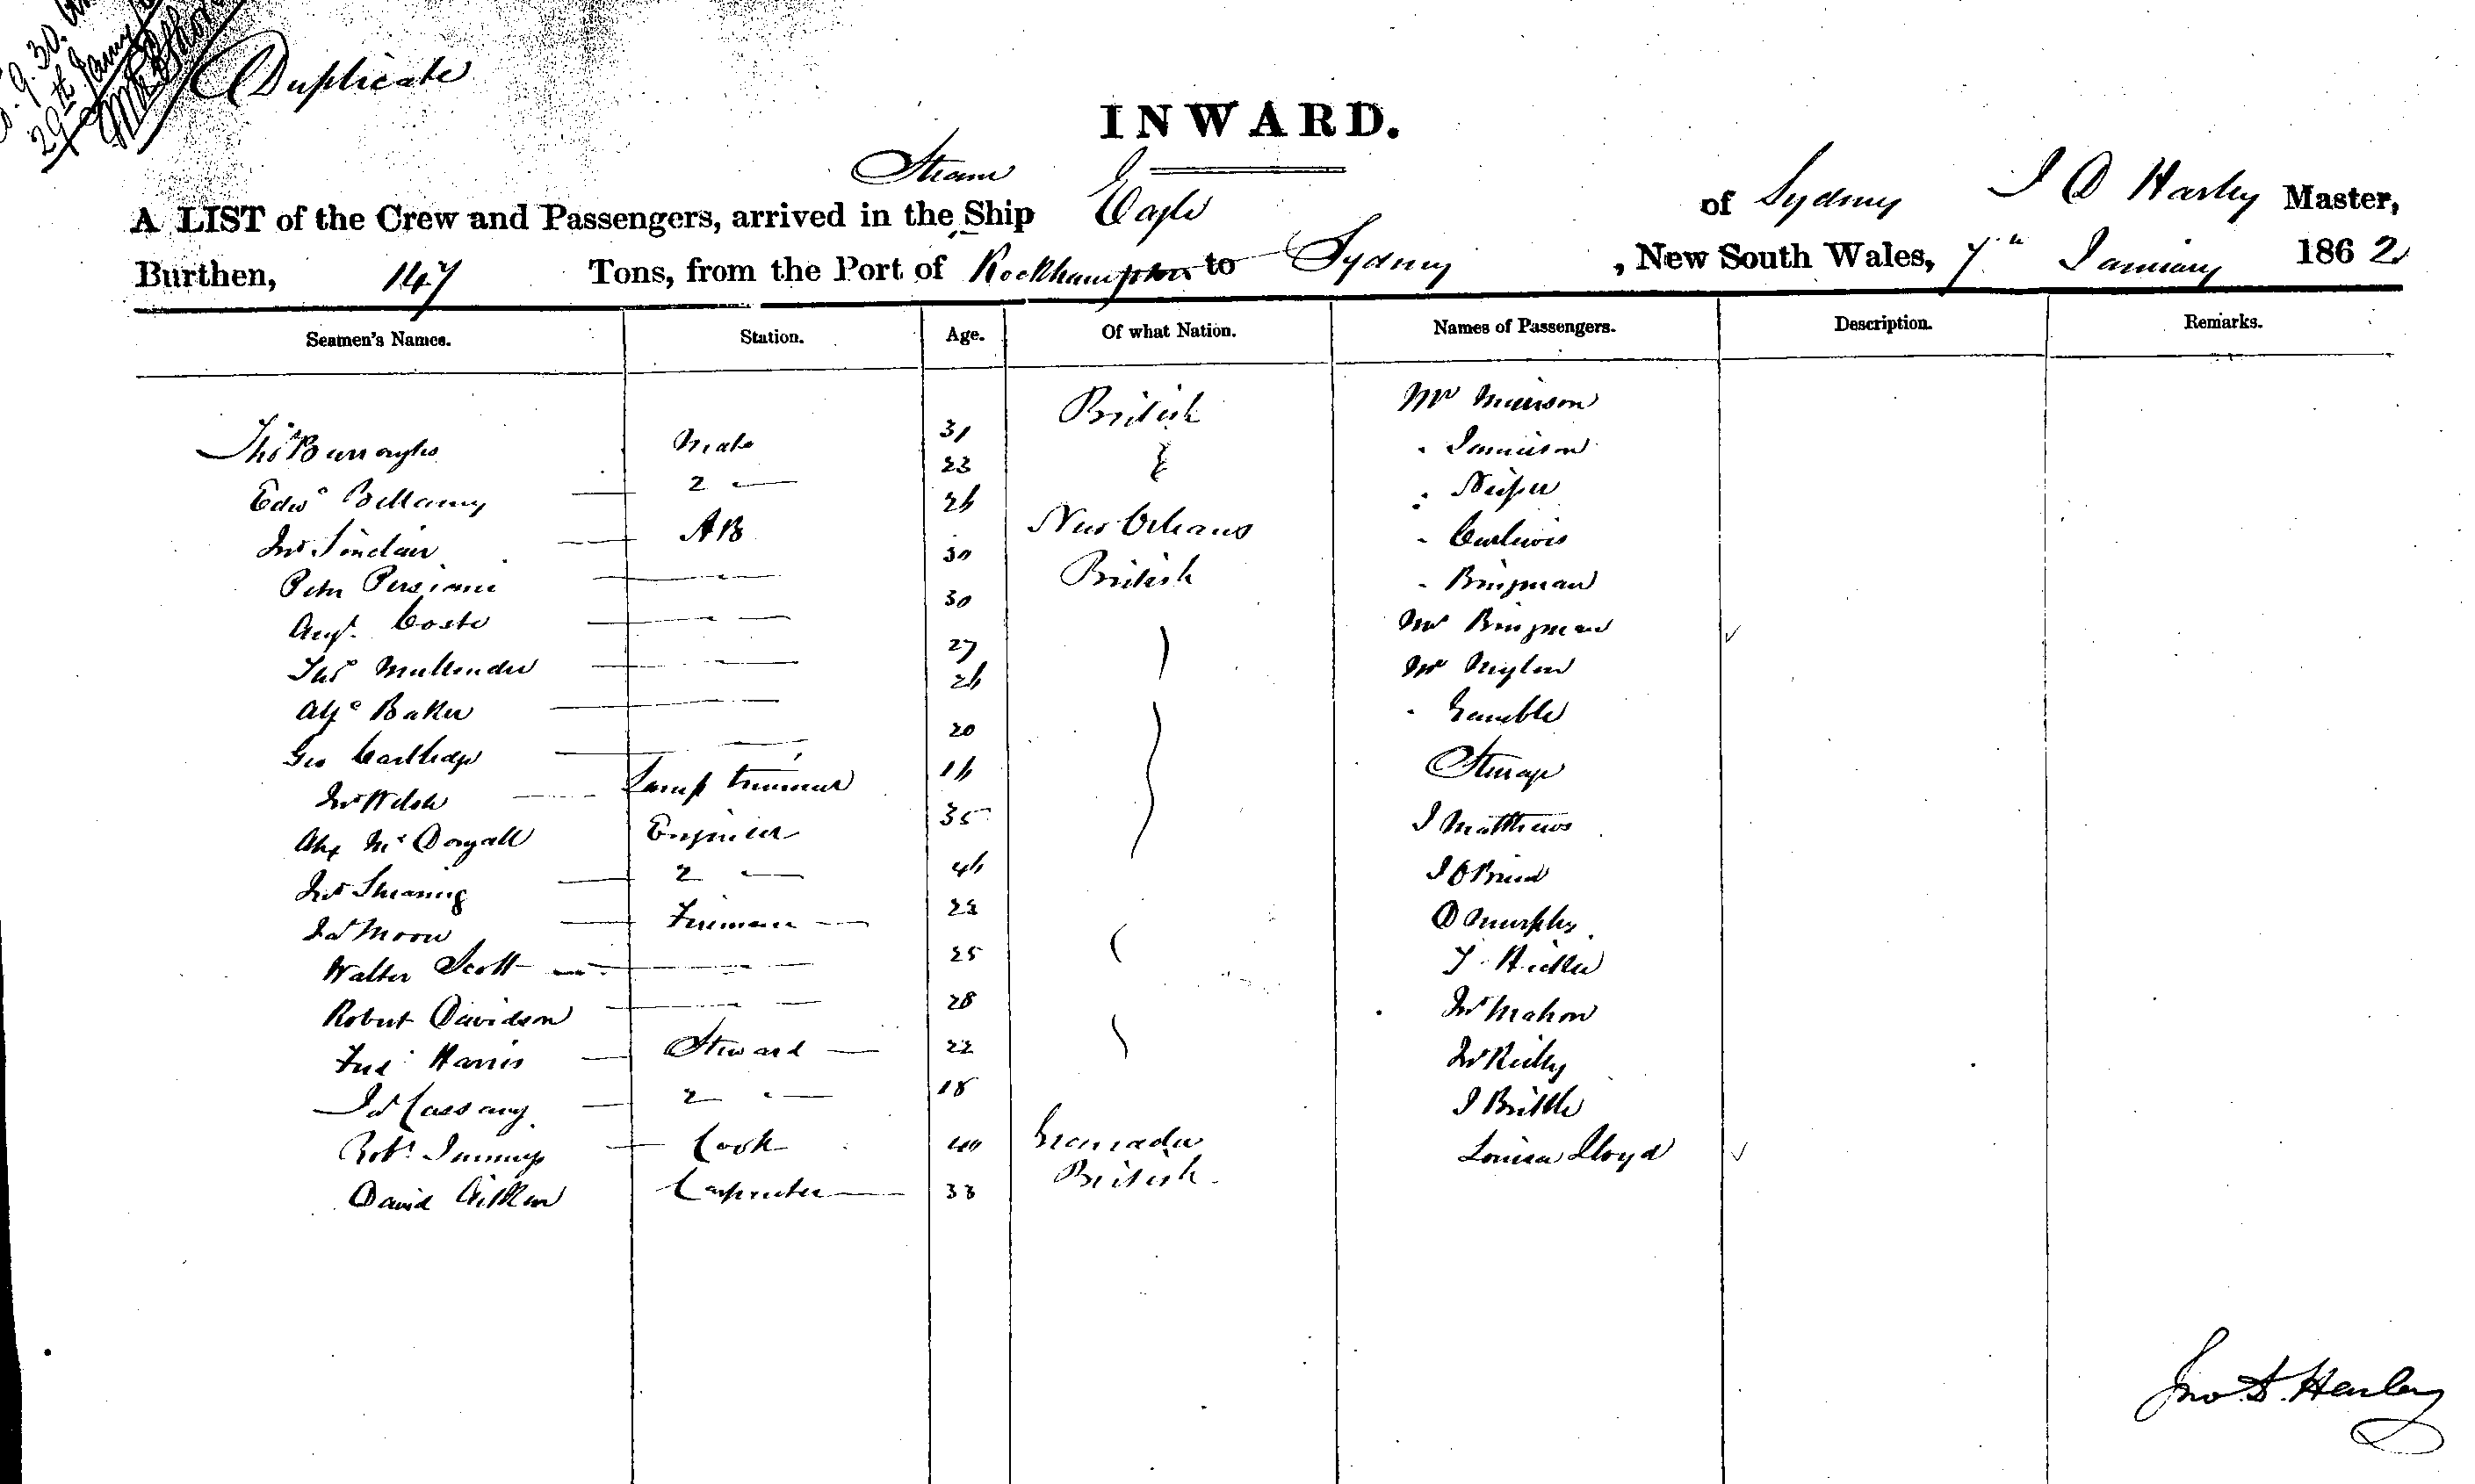 9.30.
29th Jany
Duplicate
INWARD.
Steam
A LIST of the Crew and Passengers, arrived in the Ship Eagle of Sydney J D Harley Master,
Burthen, 147 Tons, from the Port of Rockhampton to Sydney, New South Wales, 7th January 1862
Seamen's Names. Station. Age. Of what Nation. Names of Passengers. Description. Remarks.
Thos Burroughs Mate 31 British Mr
Edwd Bellamy 2 — 23 Jamieson
Jno Sinclair AB 26
Peter 30 New Orleans Curlewis
Augt. Coste 30 British Bingman
Thos Mullender 27 Bingman
Alfd Baker 26 Mr
Geo Cartlidge 20 Gamble
Jno Welsh Lamp trimmer 16 Steerage
Alex McDougall Engineer 35 J Matthews
Jno Shearing 2 — 46 J O Brien
Jas Moon Fireman 22 D Murphy
Walter Scott 25 T
Robert Davidson 28 Jno Mahon
Fred Harris Steward 22 Jno Reilly
Jas 2 — 18 J Brittle
Robt. Cook 40 Grenada Louisa Lloyd
David Aitken Carpenter 33 British
Jno. D. Harley